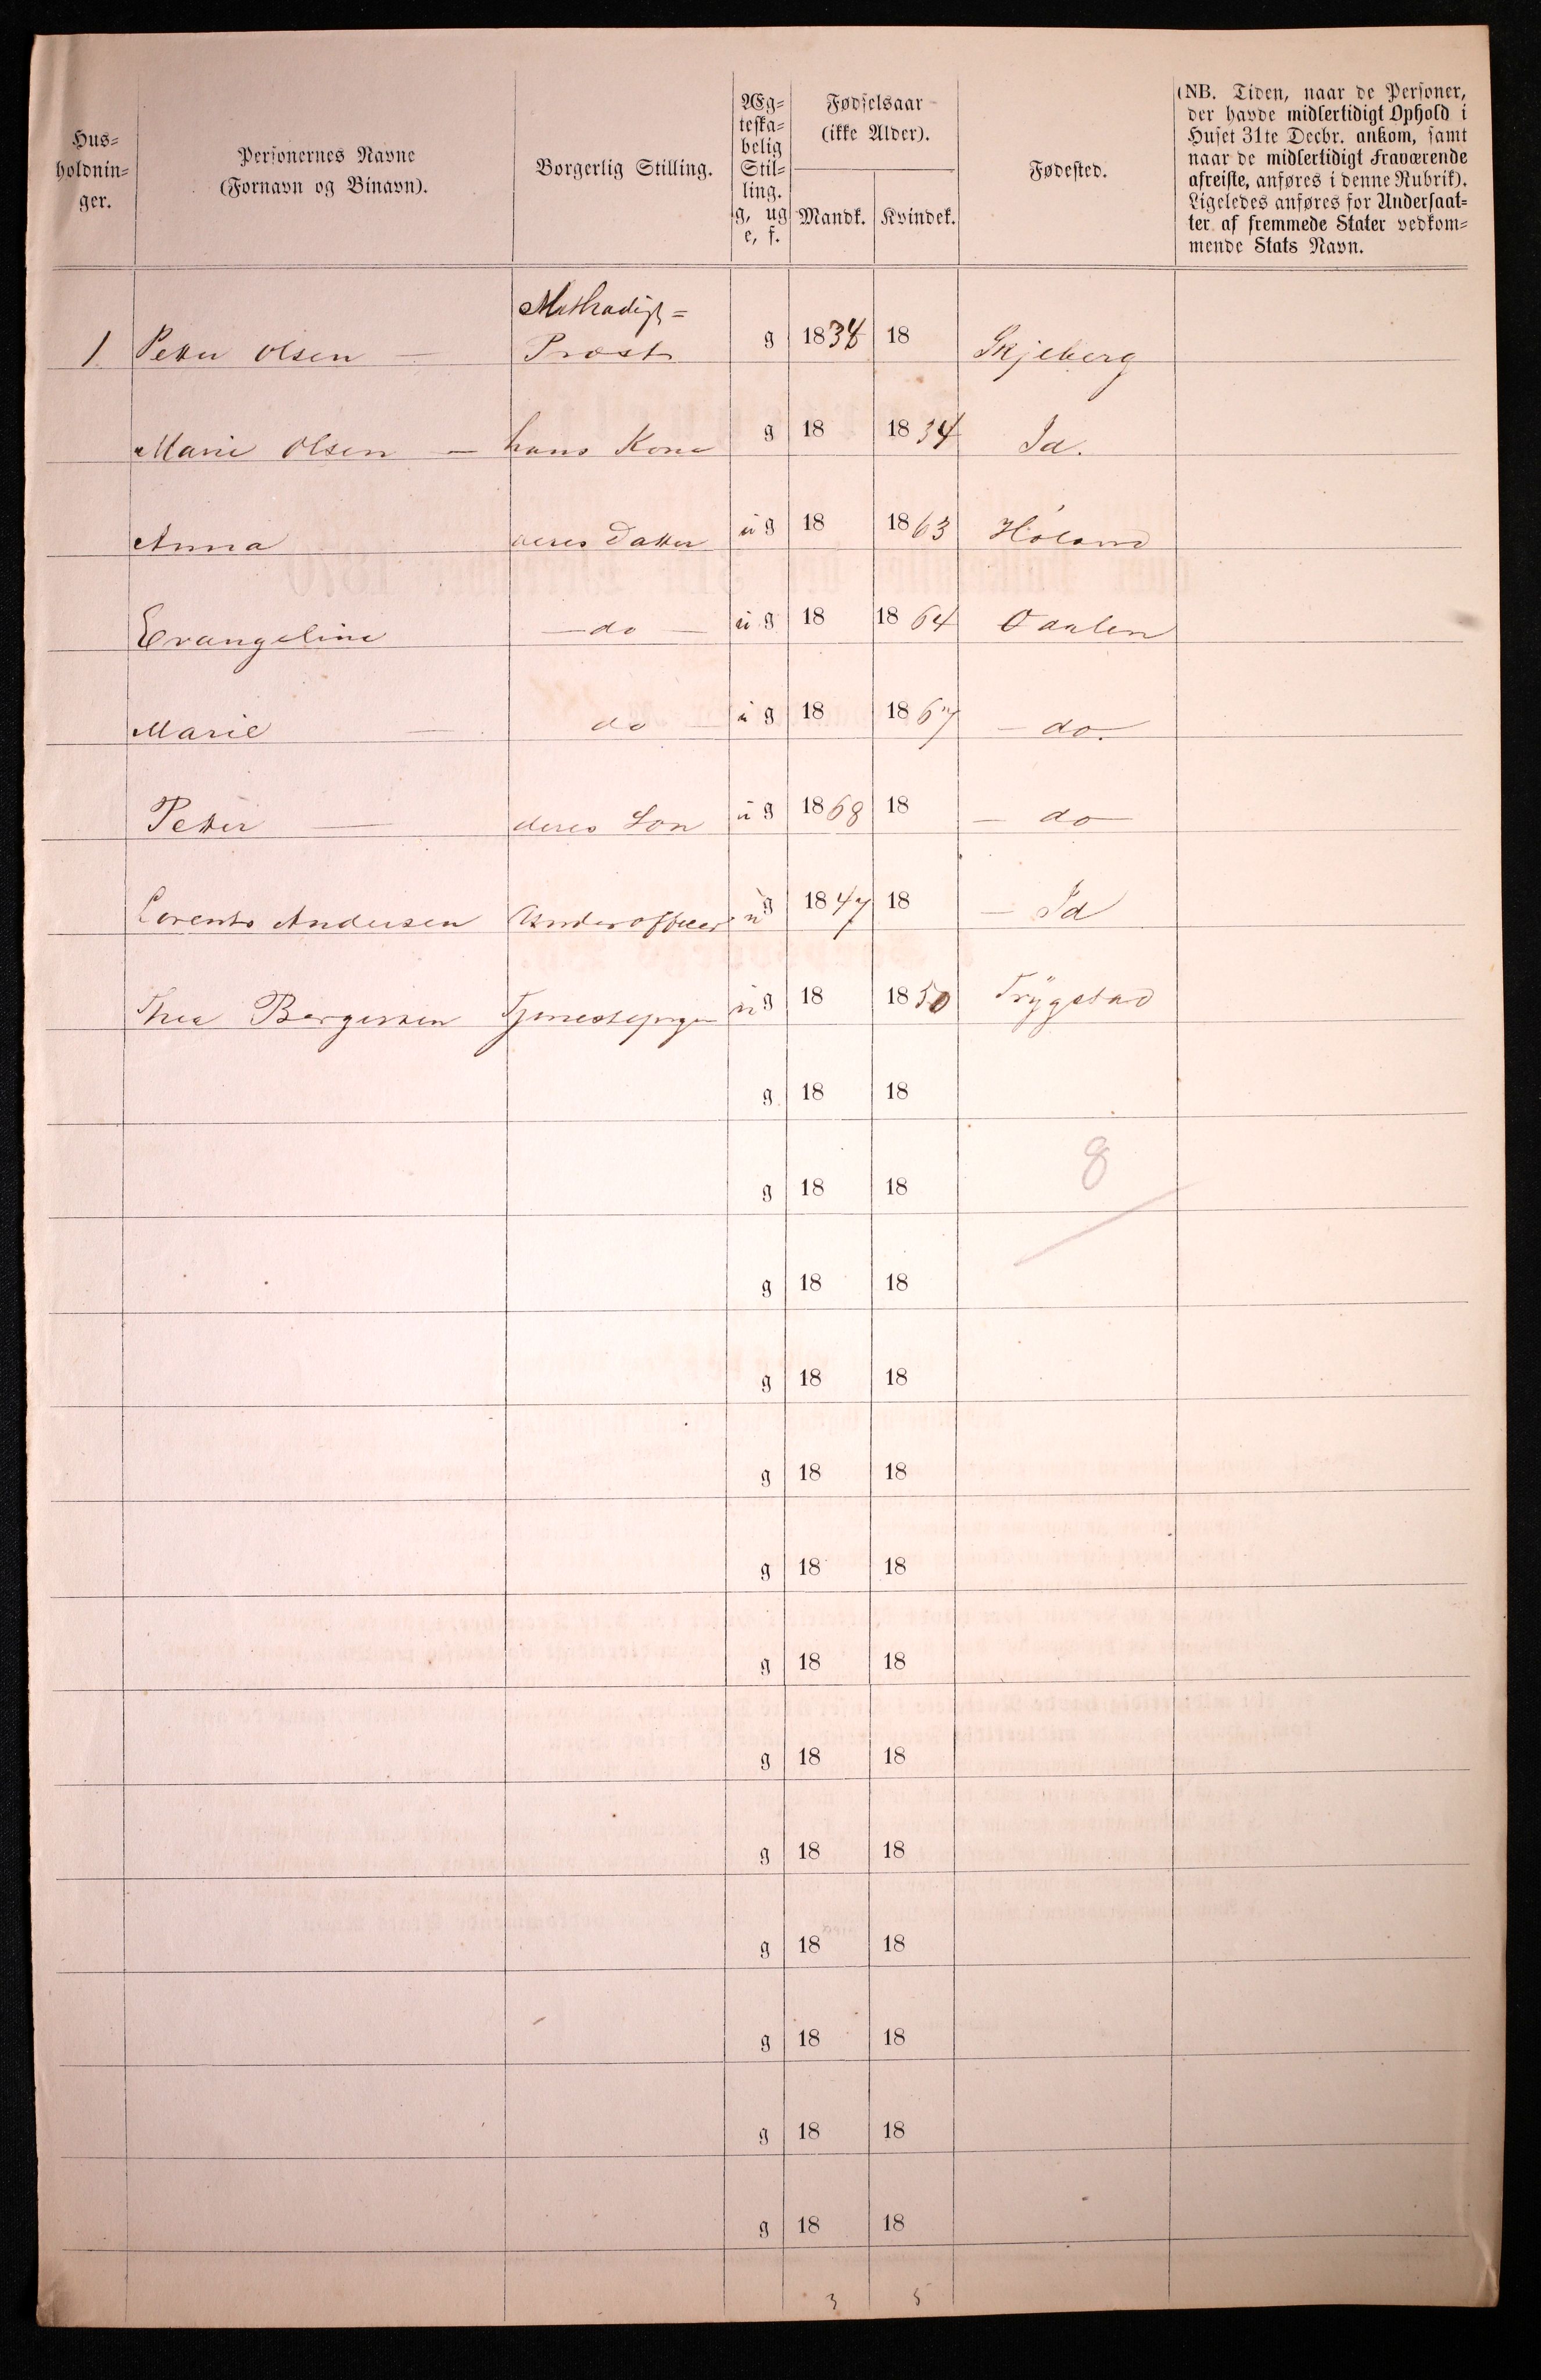 Hus=
holdnin=
ger.
Personernes Navne
(Fornavn og Binavn).
Borgerlig Stilling.
Æg=
teska=
belig
Stil=
ling.
g, ug
e, f.
Fødselsaar
(ikke Alder).
Mandk. Kvindek.
Fødested.
(NB. Tiden, naar de Personer,
der havde midlertidigt Ophold i
Huset 31te Decbr. ankom, samt
naar de midlertidigt Fraværende
afreiste, anføres i denne Rubrik).
Ligeledes anføres for Undersaat=
ter af fremmede Stater vedkom=
mende Stats Navn.
Methodist=
1 Petter Olsen — Præst g 1834 18 Skjeberg
Marie Olsen — hans Kone g 18 1834 Id.
Anna deres Datter ug 18 1863 Höland
Evangeline — do — ug 18 1864 Odalen
Marie — do — ug 18 1867 — do.
Petter — deres Søn ug 1868 18 — do
Lorents Andersen Underofficer ug 1847 18 — Id
Thea Børgersen Tjenestepige ug 18 1850 Trygstad
g 18 18
g 18 18 8
g 18 18
g 18 18
g 18 18
g 18 18
g 18 18
g 18 18
g 18 18
g 18 18
g 18 18
g 18 18
g 18 18
3 5